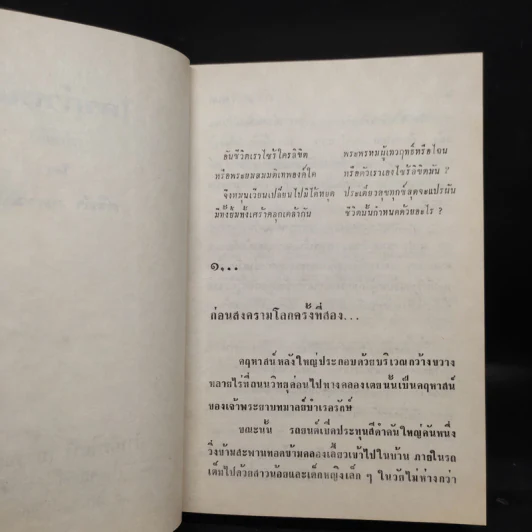 อันชีวิตเราไซร้ใครลิขิต พระพรหมผู้เทวฤทธิ์หรือไฉน
หรือพระยมสมมติเทพองค์ใด หรือตัวเราเองไซร้ลิขิตมัน ?
จึงหมุนเวียนเปลี่ยนไปมิได้หยุด ประเดี๋ยวสุขทุกข์สุดจะแปรผัน
มีทั้งยิ้มทั้งเศร้าคลุกเคล้ากัน ชีวิตนั้นกำหนดด้วยอะไร ?
๑...
ก่อนสงครามโลกครั้งที่สอง...
คฤหาสน์หลังใหญ่ประกอบด้วยบริเวณกว้างขวาง
หลายไร่ที่ถนนวิทยุต่อนไปทางคลองเตยนั้นเป็นคฤหาสน์
ของเจ้าพระยาบทมาลย์บำเรอรักษ์
ขณะนั้น รถยนต์เปิดประทุนสีดำคันใหญ่คันหนึ่ง
วิ่งข้ามสะพานทอดข้ามคลองเลี้ยวเข้าไปในบ้าน ภายในรถ
เต็มไปด้วยสาวน้อยและเด็กหญิงเล็ก ๆ ในวัยไม่ห่างกว่า